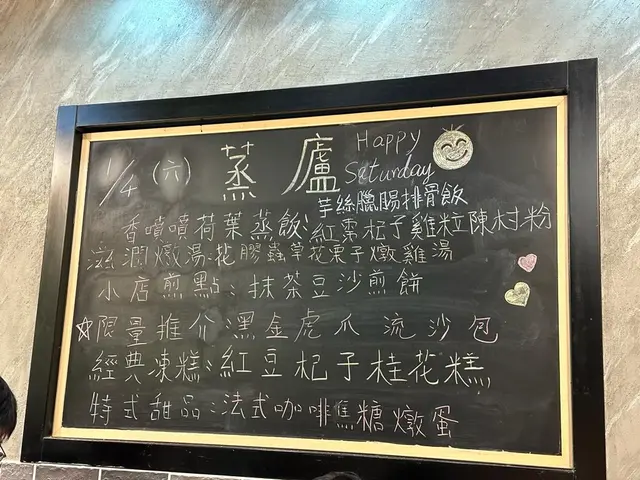 1/4 (六) 蒸廬 Happy Saturday
芋絲臘腸排骨飯
香噴噴荷葉蒸飯:紅棗杞子雞粒陳村粉
滋潤燉湯:花膠蟲草花栗子燉雞湯
小店煎點:抹茶豆沙煎餅
☆限量推介黑金虎爪流沙包
經典凍糕:紅豆杞子桂花糕
特式甜品:法式咖啡焦糖燉蛋